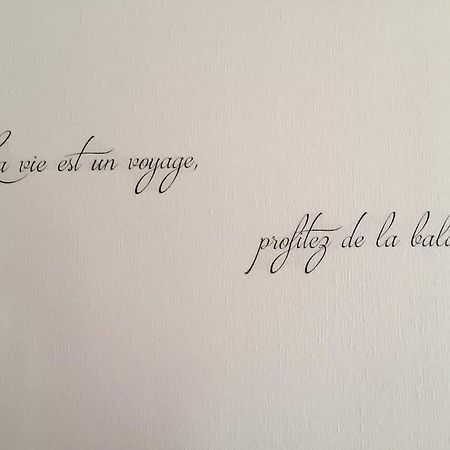 La vie est un voyage,
profitez de la bala